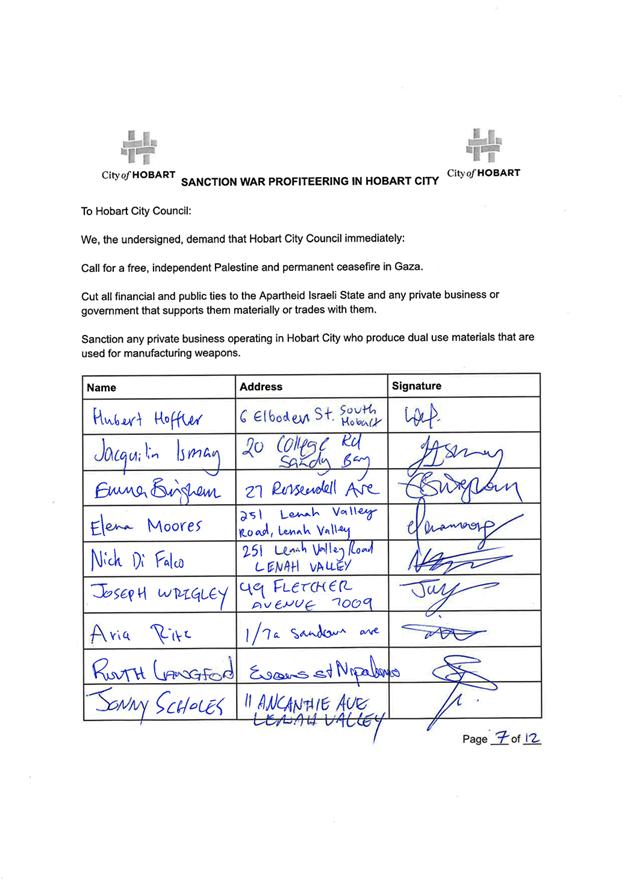 City of HOBART
City of HOBART
SANCTION WAR PROFITEERING IN HOBART CITY
To Hobart City Council:
We, the undersigned, demand that Hobart City Council immediately:
Call for a free, independent Palestine and permanent ceasefire in Gaza.
Cut all financial and public ties to the Apartheid Israeli State and any private business or
government that supports them materially or trades with them.
Sanction any private business operating in Hobart City who produce dual use materials that are
used for manufacturing weapons.
Name Address Signature
Hubert Hoffler 6 Elboden St. South
Hobart
Jacquilin Ismay 20 College Rd
Sandy Bay
Emma Bingham 27 Ave
Elena Moores 251 Lenah Valley
Road, Lenah Valley
Nick Di Falco 251 Lenah Valley Road
LENAH VALLEY
JOSEPH WRIGLEY 49 FLETCHER
AVENUE 7009
Aria 1/7a Sandown ave
RUTH LANGFORD Evans st
JONNY SCHOLES 11 ANCANTHIE AVE
LENAH VALLEY
Page 7 of 12